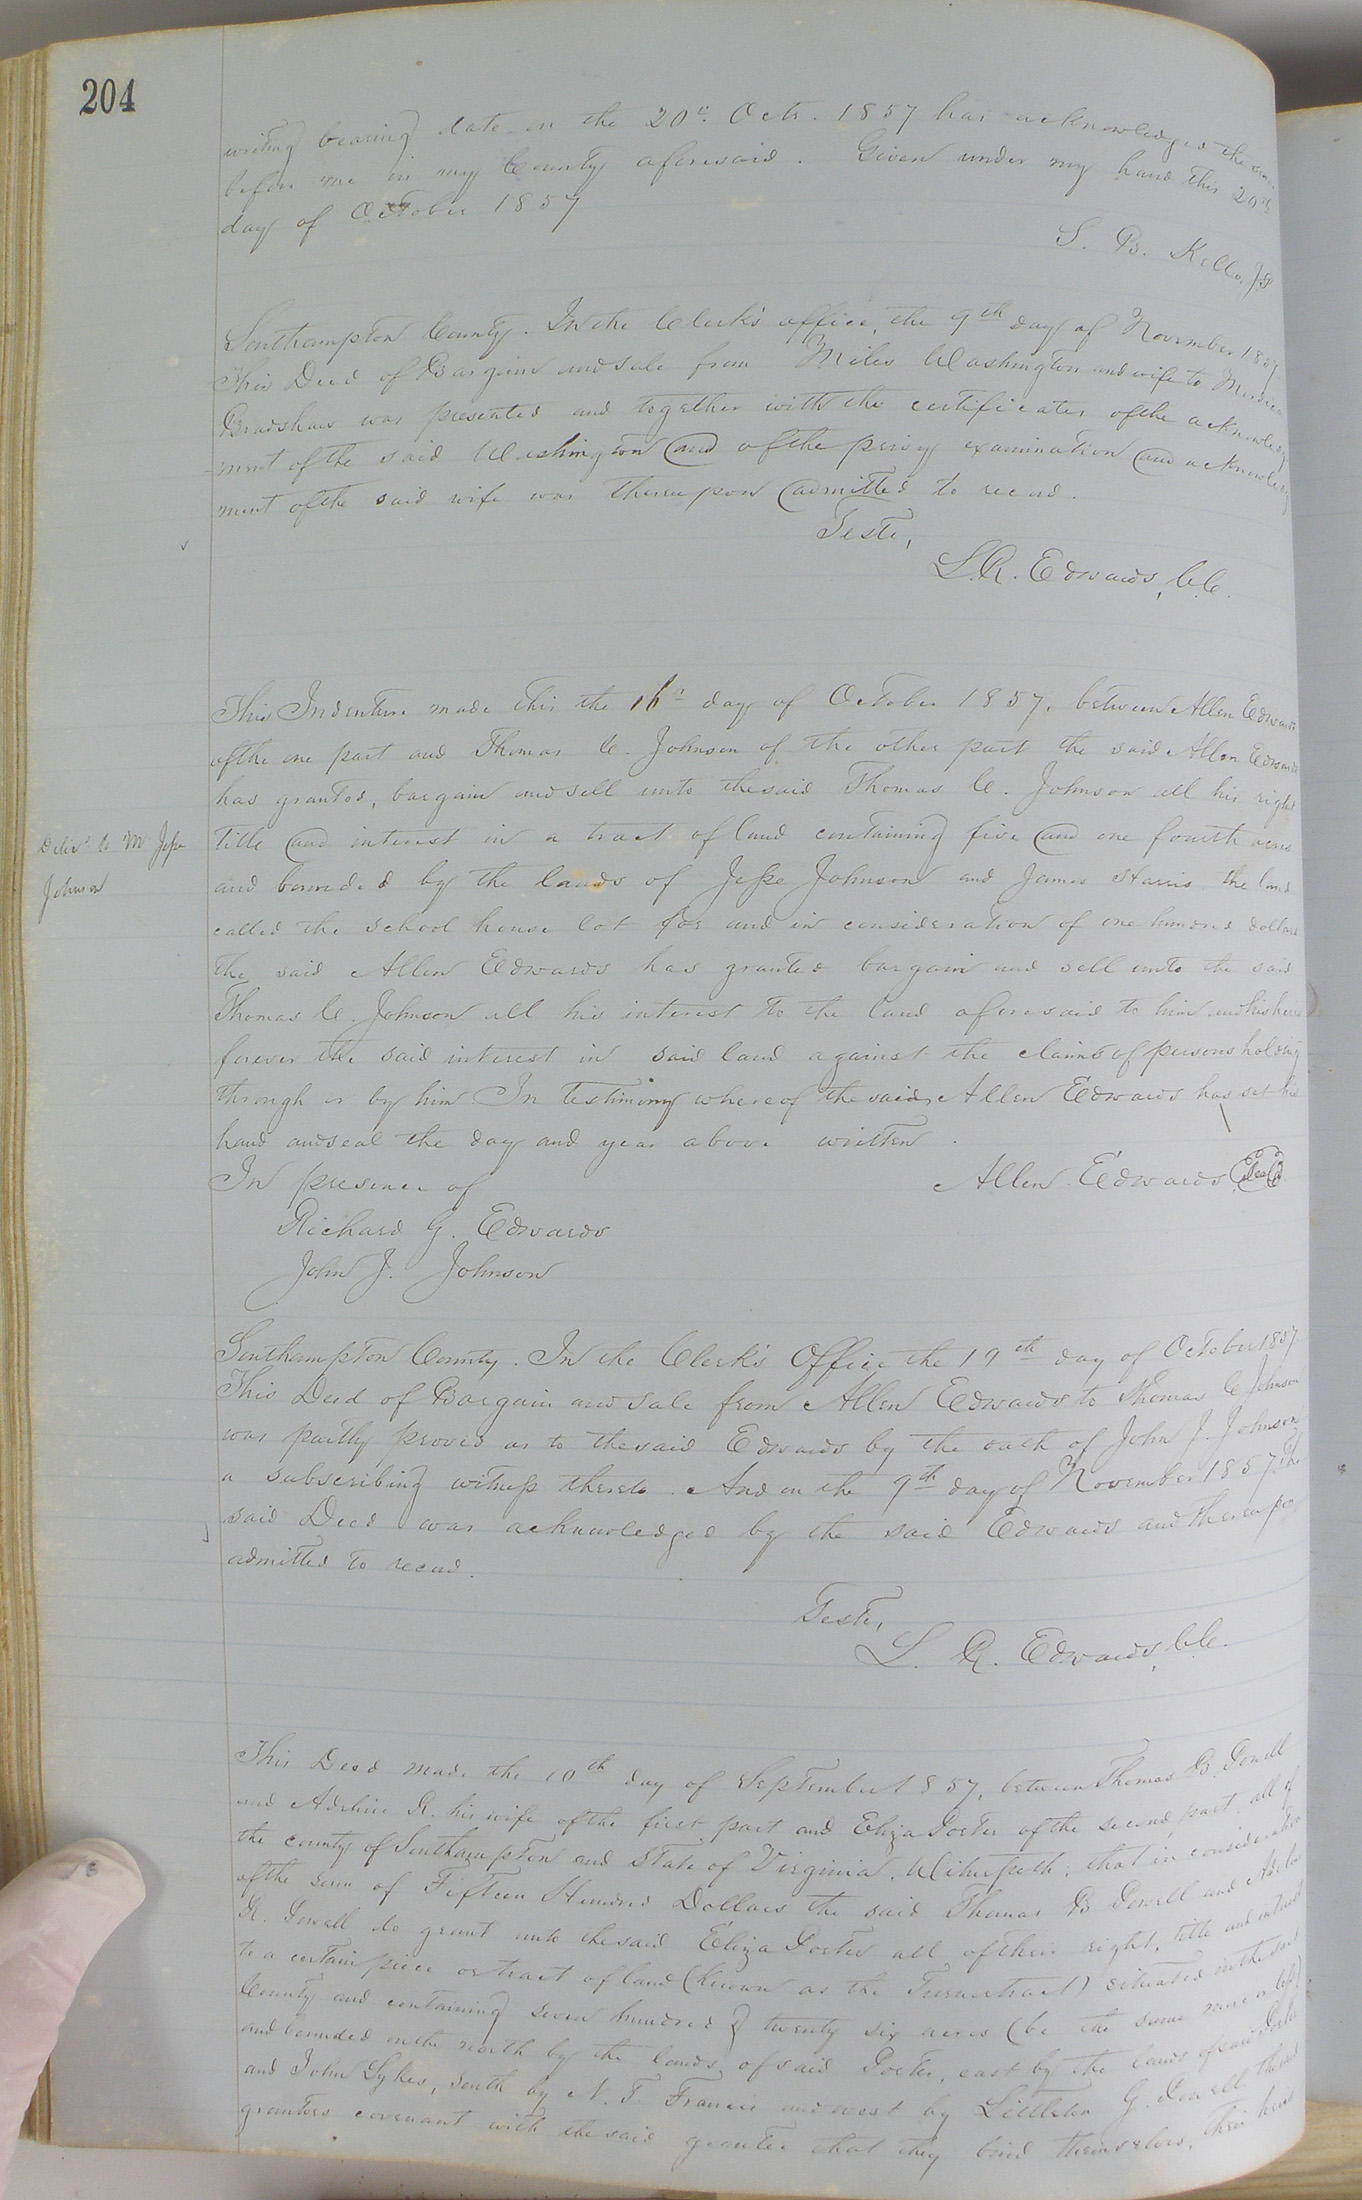 204
writing bearing date on the 20th Octr. 1857 has acknowledged the same
before me in my County aforesaid. Given under my hand this 20th
day of October 1857
S. B. Kello, JP
Southampton County. In the Clerk's office, the 9th day of November 1857
This Deed of Bargain and sale from Miles Washington and wife to
Bradshaw was presented and together with the certificates of the acknowledg
ment of the said Washington and of the privy examination and acknowledg
ment of the said wife was thereupon admitted to record.
Teste,
L. R. Edwards, C.C.
This Indenture made this the 16th day of October 1857, between Allen Edwards
of the one part and Thomas C. Johnson of the other part the said Allen Edwards
has granted, bargain and sell unto the said Thomas C. Johnson all his right
title and interest in a tract of land containing five and one fourth acres
Delivd. to Mr Jesse
Johnson
and bounded by the lands of Jesse Johnson and James Harris the land
called the school house lot for and in consideration of one hundred dollars
the said Allen Edwards has granted bargain and sell unto the said
Thomas C. Johnson all his interest to the land aforesaid to him and his heirs
forever the said interest in said land against the claims of persons holding
through or by him In testimony whereof the said Allen Edwards has set his
hand and seal the day and year above written.
In presence of Allen Edwards Seal
Richard G. Edwards
John J. Johnson
Southampton County. In the Clerk's Office the 19th day of October 1857
This Deed of Bargain and sale from Allen Edwards to Thomas C Johnson
was partly proved as to the said Edwards by the oath of John J. Johnson
a subscribing witness thereto. And on the 9th day of November 1857. The
said Deed was acknowledged by the said Edwards and thereupon
admitted to record.
Teste,
L. R. Edwards, C.C.
This Deed made the 10th day of September 1857, between Thomas B. Dowell
and Adeline R. his wife of the first part and Eliza Porter of the second part, all of
the county of Southampton and State of Virginia, Witnesseth, that in consideration
of the sum of Fifteen Hundred Dollars the said Thomas B Dowell and Adeline
R. Dowell do grant unto the said Eliza Porter all of their right, title and interest
to a certain piece or tract of land (known as the Turner tract) situated in the said
County and containing seven hundred & twenty six acres (be the same more or less)
and bounded on the north by the lands of said Porter, east by the lands of said Porter
and John Sykes, South by N. T. Francis and west by Littleton G. Dowell the said
grantors covenant with the said grantee that they bind themselves, their heirs